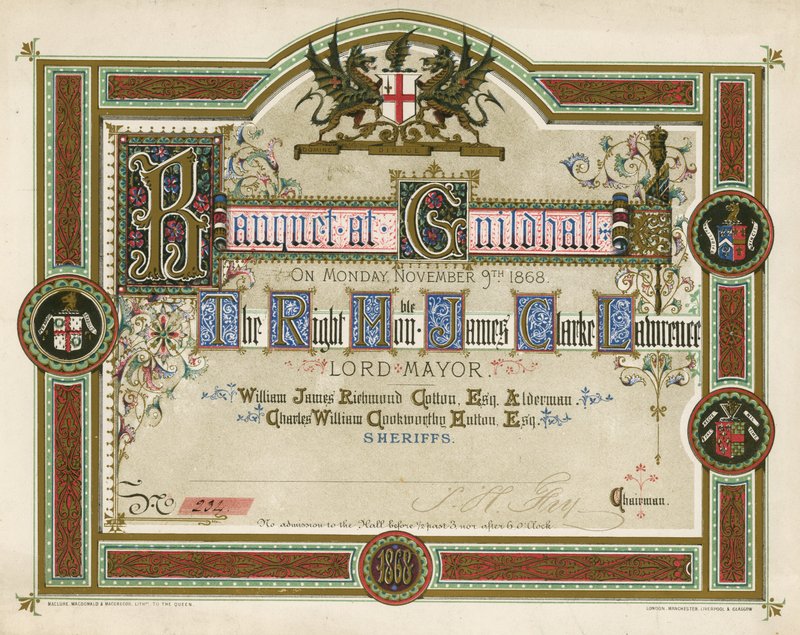 DOMINE DIRIGE NOS
Banquet at Guildhall
ON MONDAY, NOVEMBER 9TH 1868.
The Right Hon.ble James Clarke Lawrence
LORD MAYOR.
William James Richmond Cotton, Esq. Alderman.
Charles William Cookworthy Hutton, Esq.
SHERIFFS.
No 234
Chairman.
No admission to the Hall before ½ past 3, nor after 6 O'Clock
1868
MACLURE, MACDONALD & MACGREGOR, LITHRS TO THE QUEEN.
LONDON, MANCHESTER, LIVERPOOL & GLASGOW